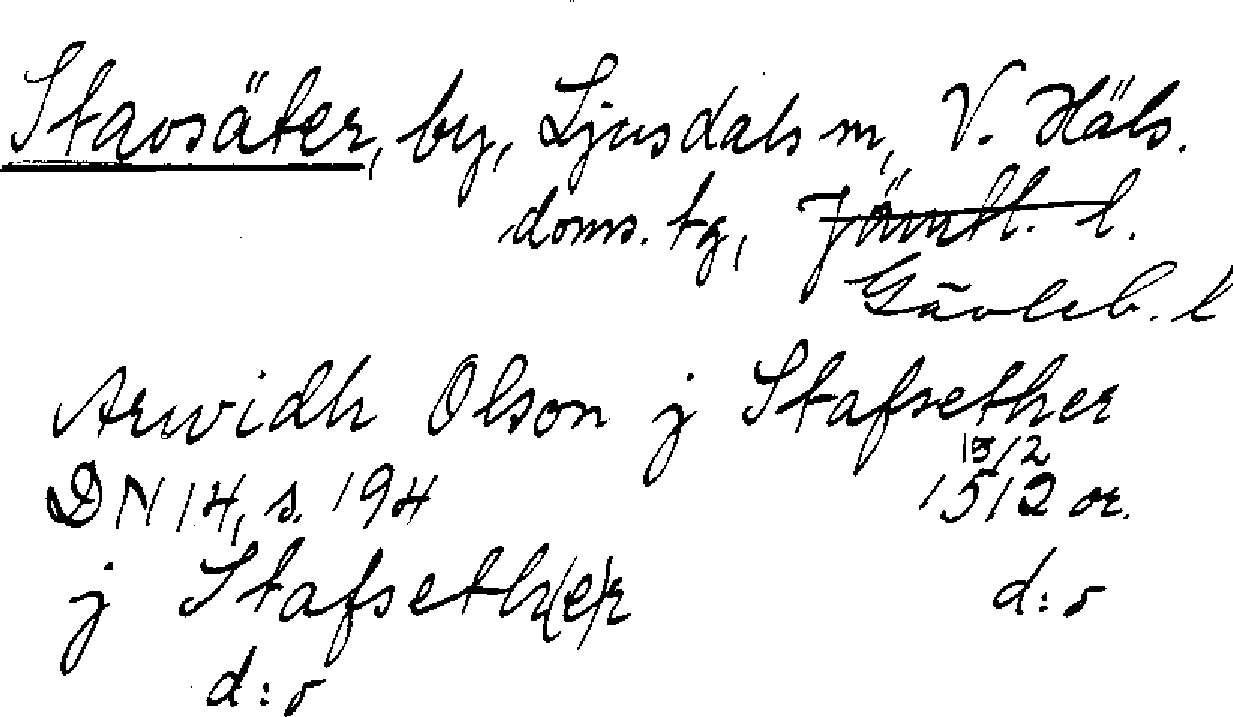 Stavsäter, by, Ljusdals sn, V. Häls.
doms. tg, Jämtl. l.
Gävleb. l
Arwidh Olson j Stafsether
13/2
DN 14, s. 194 1512 or.
j Stafseth(e)r d:o
d:o